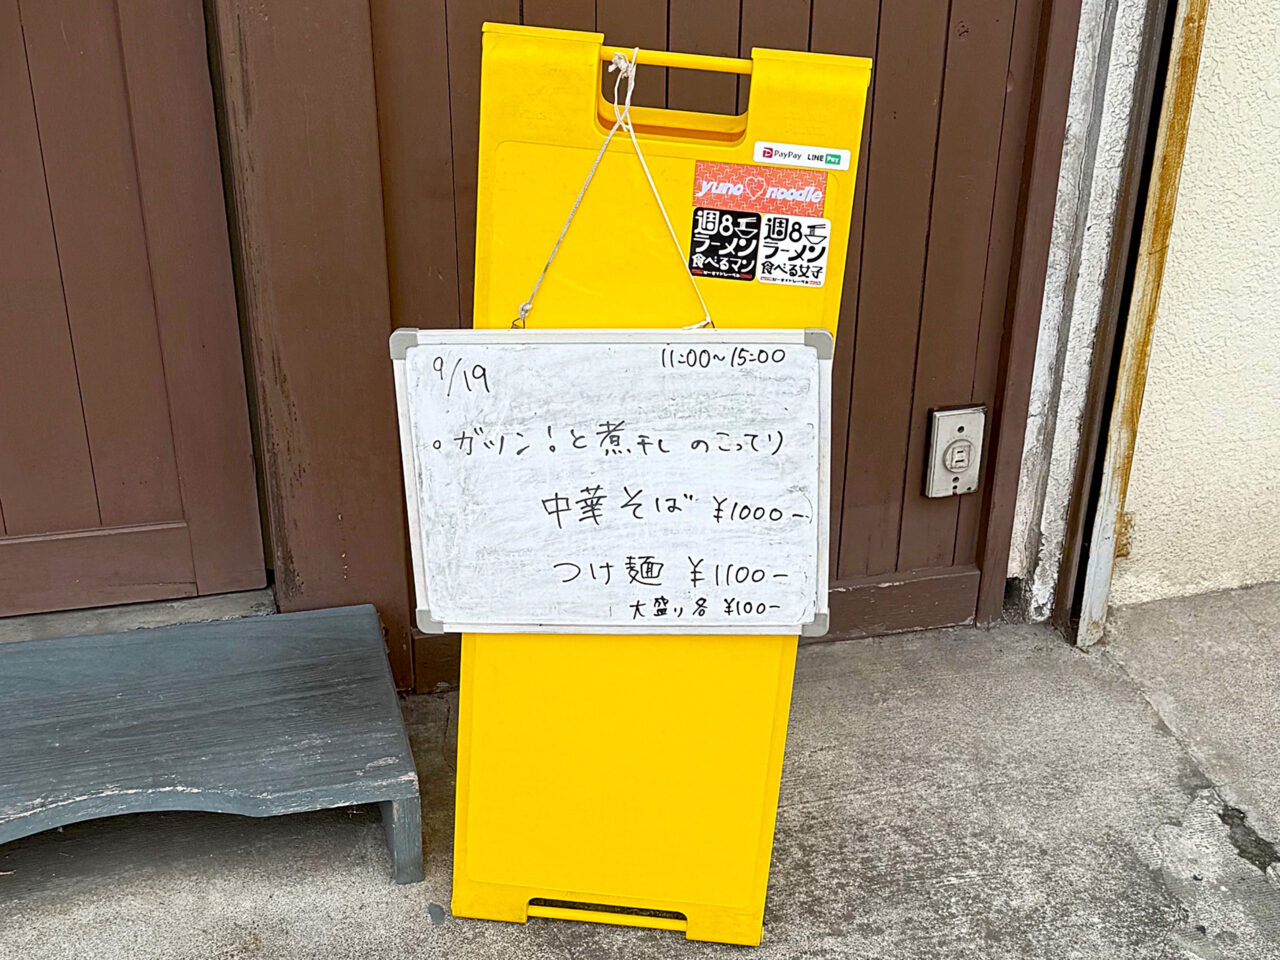 PayPay LINE Pay
yuno noodle
週8
ラーメン
食べるマン
週8
ラーメン
食べる女子
9/19
11:00~15:00
。ガツン!と煮干しのこってり
中華そば ¥1000-
つけ麺 ¥1100-
大盛り各 ¥100-